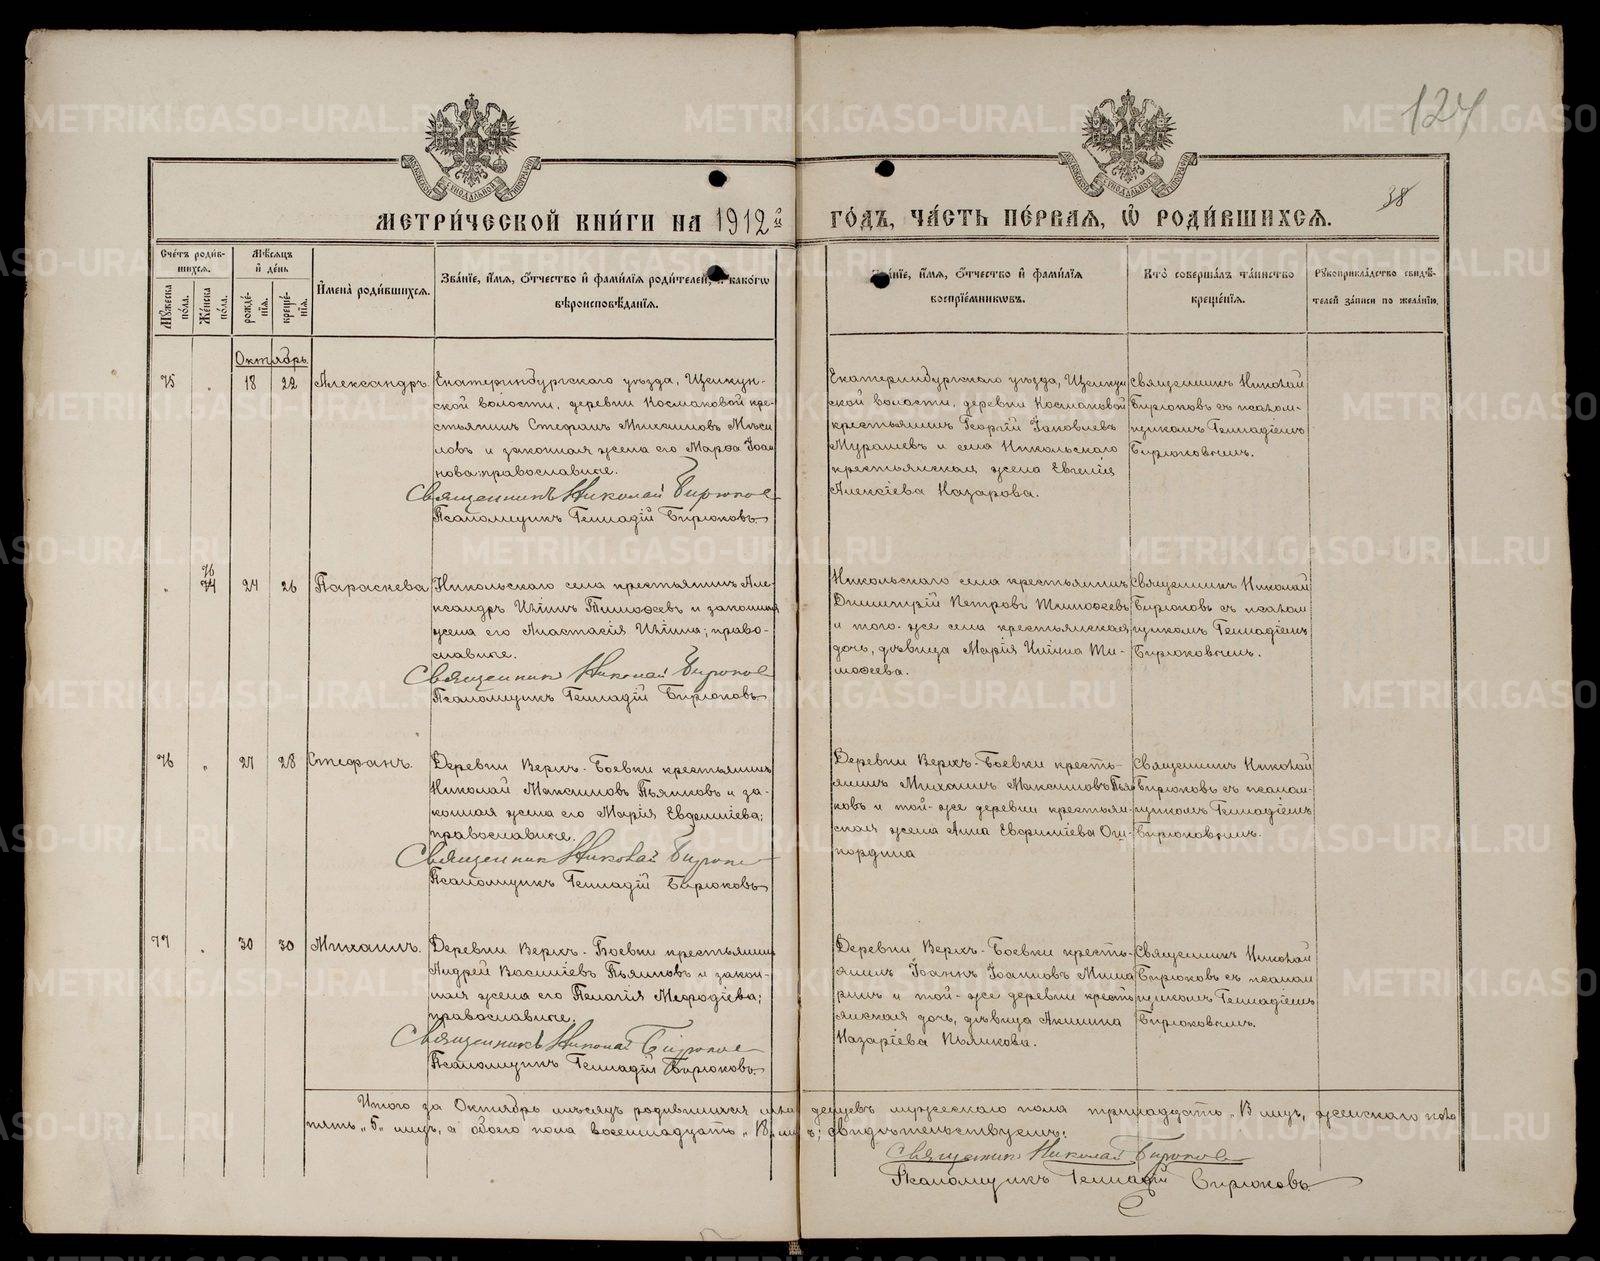 124
38
МЕТРИ́ЧЕСКОЙ КНИ́ГИ НА 1912й ГО́ДЪ, ЧА́СТЬ ПЕ́РВАЯ, Ѡ҆ РОДИ́ВШИХСЯ.
Сче́тъ роди́в-
шихся.
Мꙋ́жеска по́ла.
Же́нска по́ла.
Мѣ́сяцъ
и҆ де́нь
рожде́-
нїя.
креще́-
нїя.
И҆мена̀ роди́вшихся.
Зва́нїе, и҆́мя, ѻ҆́тчество и҆ фами́лїя роди́телей, и҆ како́гѡ
вѣроисповѣ́данїя.
Зва́нїе, и҆́мя, ѻ҆́тчество и҆ фами́лїя
воспрїе́мниковъ.
Кто̀ соверша́лъ та́инство
креще́нїя.
Рꙋкоприкла́дство свидѣ́-
телей за́писи по жела́нїю.
Октябрь.
75 „ 18 22 Александръ.
Екатеринбургскаго уѣзда, Щелкун-
ской волости, деревни Космаковой кре-
стьянинъ Стефанъ Михаиловъ
ловъ и законная жена его Марѳа Іоан
нова; православные.
Священникъ Николай Бирюков
Псаломщикъ Геннадій Бирюковъ
Екатеринбургскаго уѣзда, Щелкун
ской волости, деревни Космаковой
крестьянинъ Георгій Іаковлевъ
Мурашевъ и села Никольскаго
крестьянская жена Евгенія
Алексіева Назарова.
Священникъ Николай
Бирюковъ съ псалом-
щикомъ Геннадіемъ
Бирюковымъ.
„ 76 74 24 26 Параскева
Никольскаго села крестьянинъ Але-
ксандръ Иліинъ Тимоѳеевъ и законная
жена его Анастасія Иліина; право-
славные.
Священник Николай Бирюков
Псаломщикъ Геннадій Бирюковъ
Никольскаго села крестьянинъ
Димитрій Петровъ Тимоѳеевъ
и того-же села крестьянская
дочь, дѣвица Марія Иліина Ти-
моѳеева.
Священникъ Николай
Бирюковъ съ псалом
щикомъ Геннадіемъ
Бирюковымъ.
76 „ 27 28 Стефанъ.
Деревни Верхъ-Боевки крестьянинъ
Николай Максимовъ Пьянковъ и за-
конная жена его Марія Евѳиміева;
православные.
Священник Николай Бирюков
Псаломщикъ Геннадій Бирюковъ
Деревни Верхъ-Боевки кресть-
янинъ Михаилъ Максимовъ Пьян
ковъ и той-же деревни крестьян
ская жена Анна Евѳиміева

Священникъ Николай
Бирюковъ съ псалом-
щикомъ Геннадіемъ
Бирюковымъ.
77 „ 30 30 Михаилъ.
Деревни Верхъ-Боевки крестьянинъ
Андрей Василіевъ Пьянковъ и закон-
ная жена его Пелагія Меѳодіева;
православные.
Священникъ Николай Бирюков
Псаломщикъ Геннадій Бирюковъ.
Деревни Верхъ-Боевки кресть-
янинъ Іоаннъ Іоанновъ
и той-же деревни кресть
янская дочь, дѣвица Акилина
Назаріева
Священникъ Николай
Бирюковъ съ псалом
щикомъ Геннадіемъ
Бирюковымъ.
Итого за Октябрь мѣсяцъ родившихся младенцевъ мужескаго пола тринадцать „13„ лицъ, женскаго пола
пять „5„ лицъ, а обоего пола восемнадцать „18„ лицъ; свидѣтельствуемъ:
Священник Николай Бирюков
Псаломщикъ Геннадій Бирюковъ.
METRIKI.GASO-URAL.RU